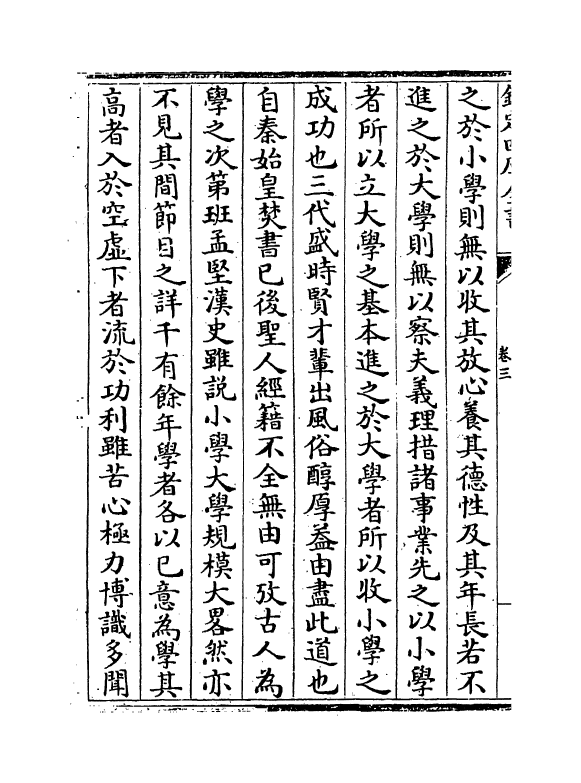 欽定四庫全書
卷三
之於小學則無以收其放心養其德性及其年長若不
進之於大學則無以察夫義理措諸事業先之以小學
者所以立大學之基本進之於大學者所以收小學之
成功也三代盛時賢才輩出風俗醇厚葢由盡此道也
自秦始皇焚書已後聖人經籍不全無由可攷古人為
學之次第班孟堅漢史雖説小學大學規模大畧然亦
不見其間節目之詳千有餘年學者各以已意為學其
高者入於空虛下者流於功利雖苦心極力博識多聞